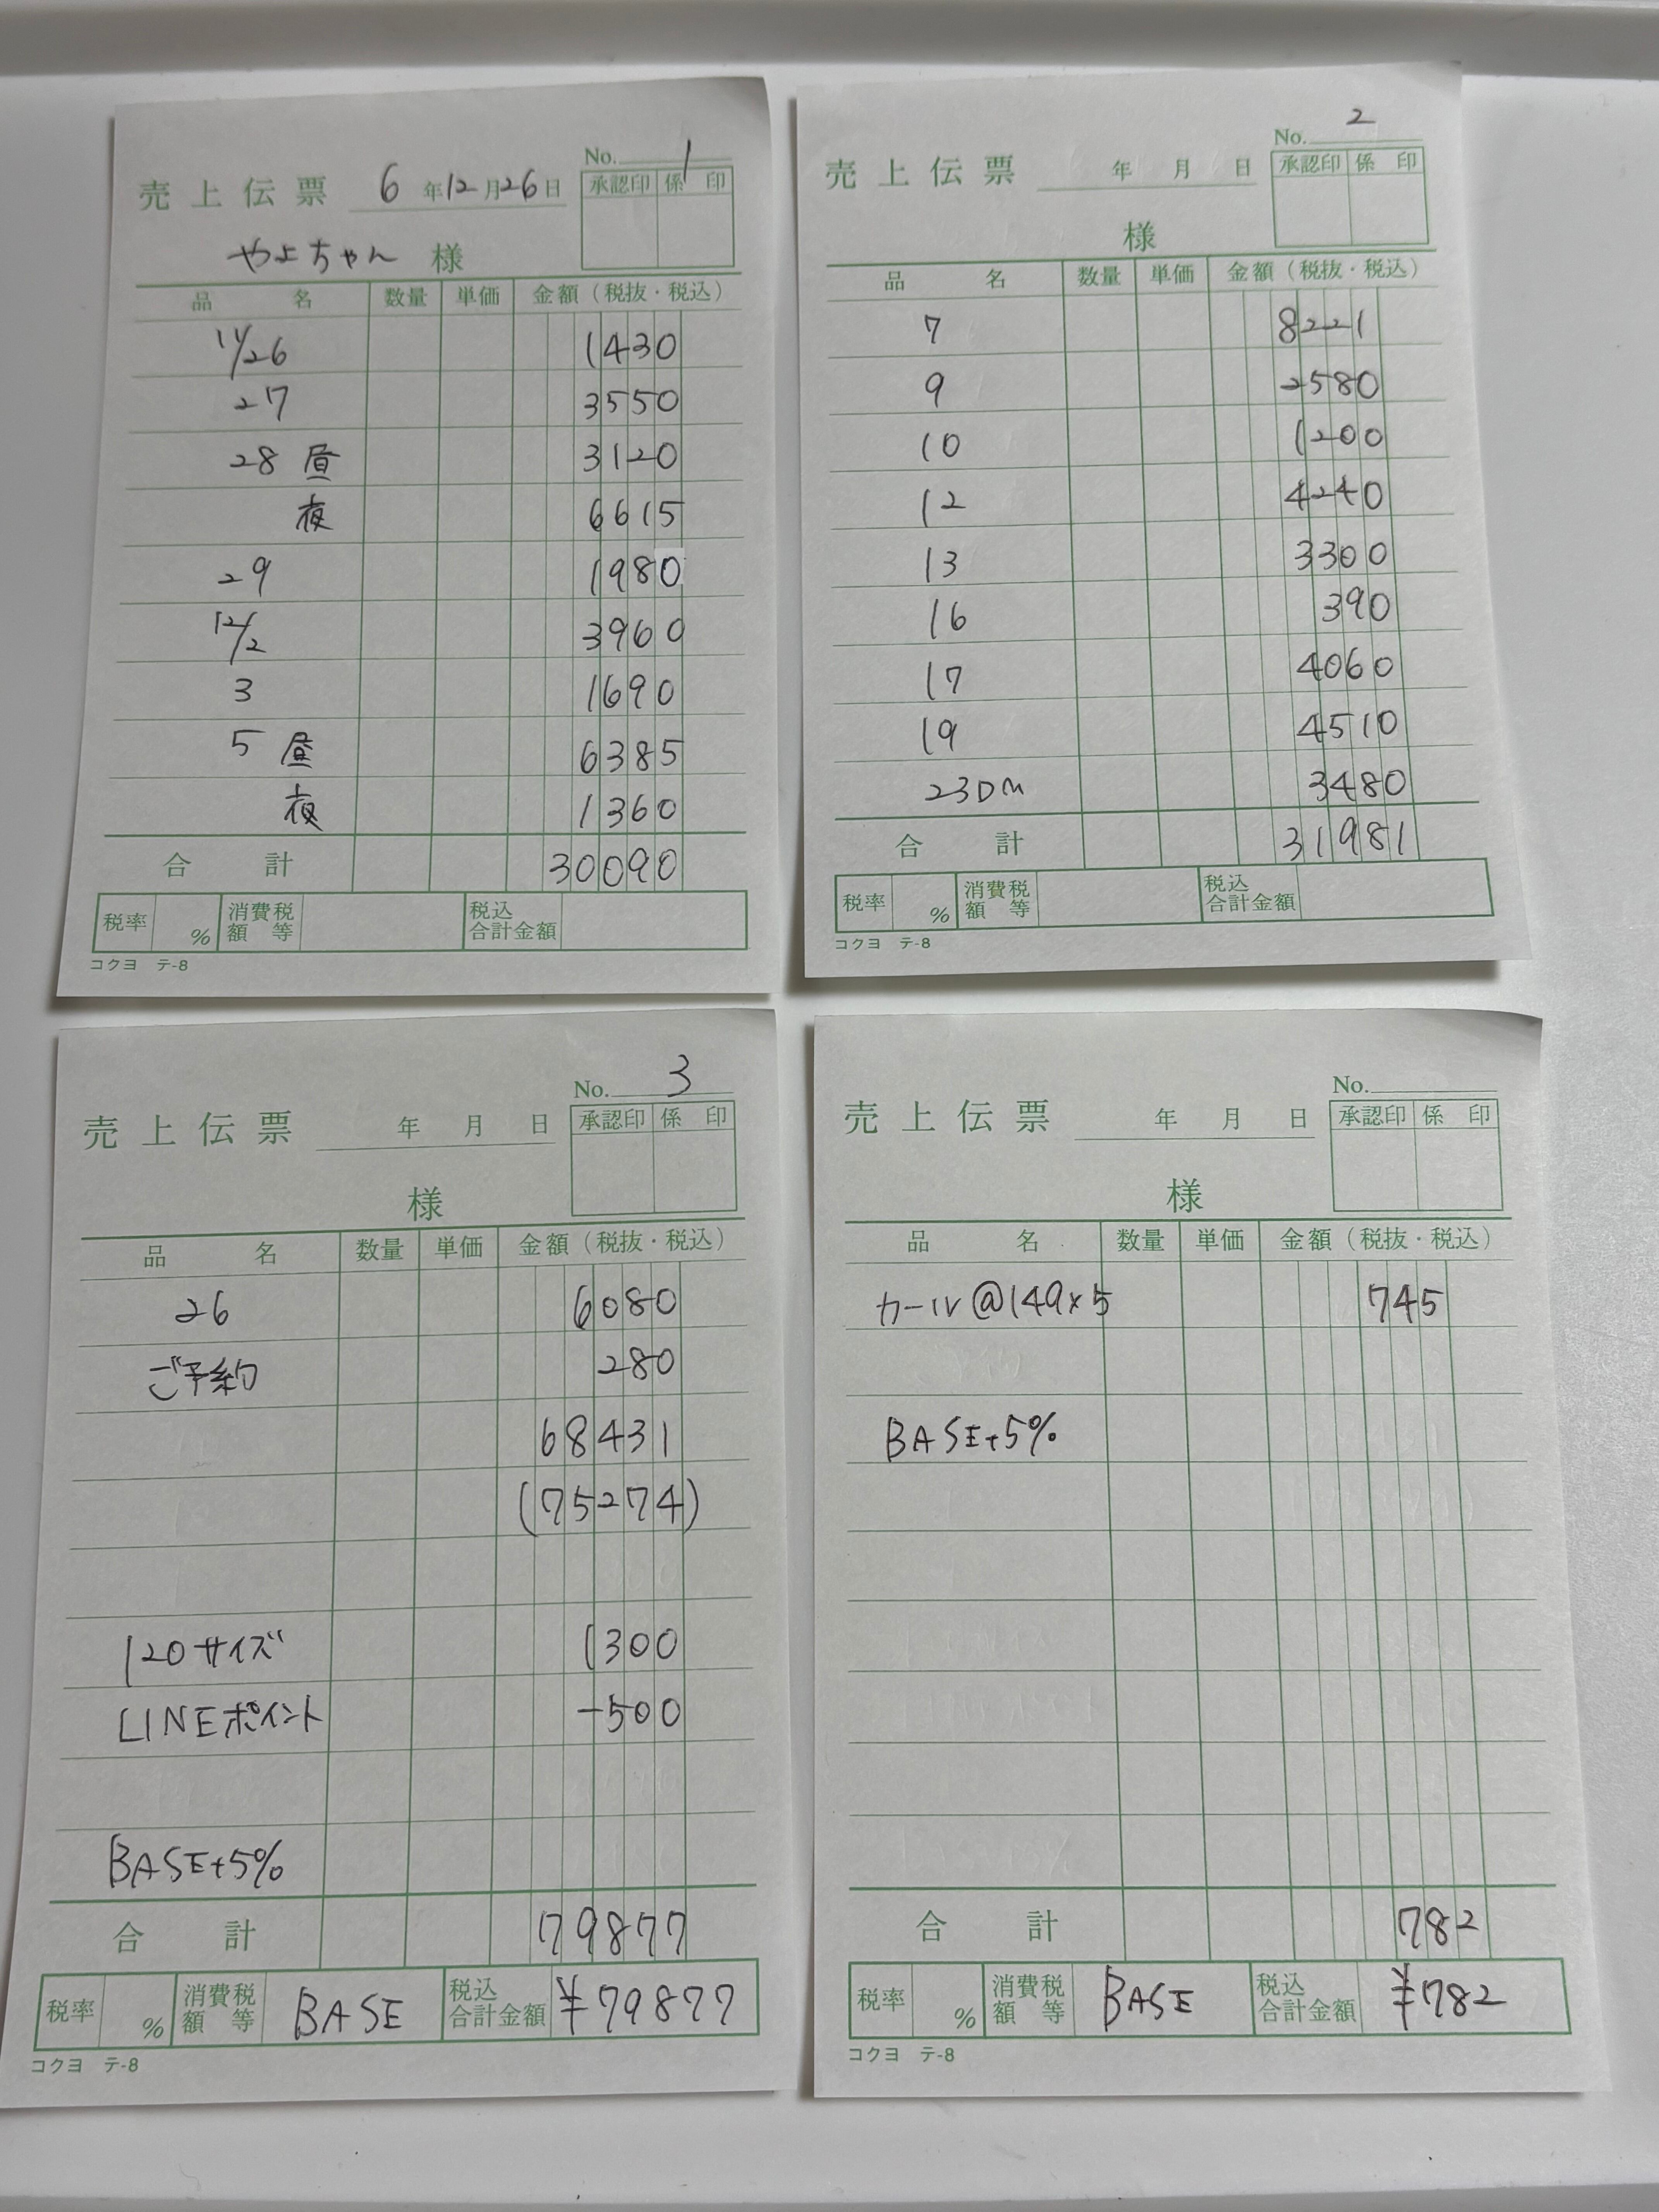 No. 1
売上伝票 6年12月26日
承認印 係印
やよちゃん 様
品名 数量 単価 金額(税抜・税込)
11/26 1430
27 3550
28 昼 3120
夜 6615
29 1980
12/2 3960
3 1690
5 昼 6385
夜 1360
合計 30090
税率 % 消費税額等 税込合計金額
コクヨ テ-8
No. 2
売上伝票 年 月 日
承認印 係印
様
品名 数量 単価 金額(税抜・税込)
7 8221
9 2580
10 1200
12 4240
13 3300
16 390
17 4060
19 4510
23DM 3480
合計 31981
税率 % 消費税額等 税込合計金額
コクヨ テ-8
No. 3
売上伝票 年 月 日
承認印 係印
様
品名 数量 単価 金額(税抜・税込)
26 6080
ご予約 280
68431
(75274)
120サイズ 1300
LINEポイント -500
BASE+5%
合計 79877
税率 % 消費税額等 BASE 税込合計金額 ¥79877
コクヨ テ-8
No.
売上伝票 年 月 日
承認印 係印
様
品名 数量 単価 金額(税抜・税込)
カール@149×5 745
BASE+5%
合計 782
税率 % 消費税額等 BASE 税込合計金額 ¥782
コクヨ テ-8